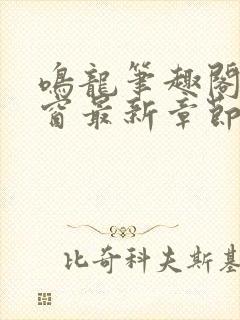 鳴龍筆趣閣
窗最新章節
比奇科夫斯基